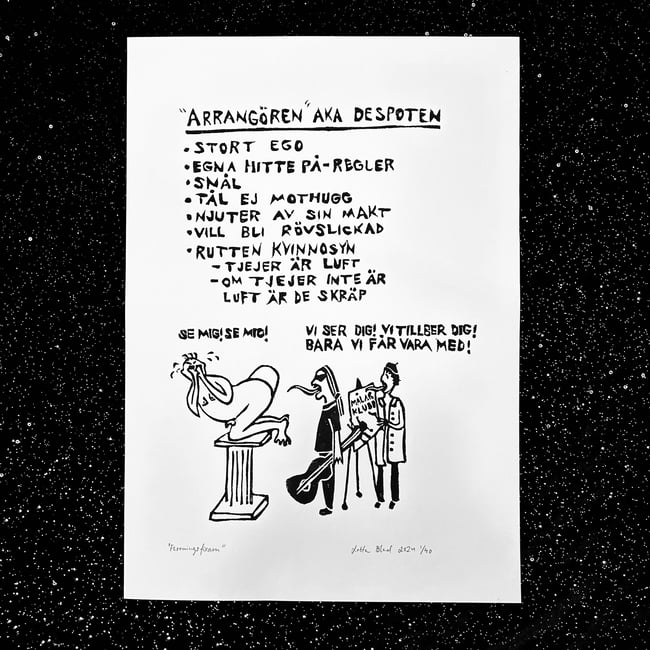 "ARRANGÖREN" AKA DESPOTEN
• STORT EGO
• EGNA HITTE PÅ-REGLER
• SNÅL
• TÅL EJ MOTHUGG
• NJUTER AV SIN MAKT
• VILL BLI RÖVSLICKAD
• RUTTEN KVINNOSYN
- TJEJER ÄR LUFT
- OM TJEJER INTE ÄR
LUFT ÄR DE SKRÄP
SE MIG! SE MIG!
VI SER DIG! VI TILLBER DIG!
BARA VI FÅR VARA MED!
MÅLAR
KLUBB
Lotta 2024 1/40